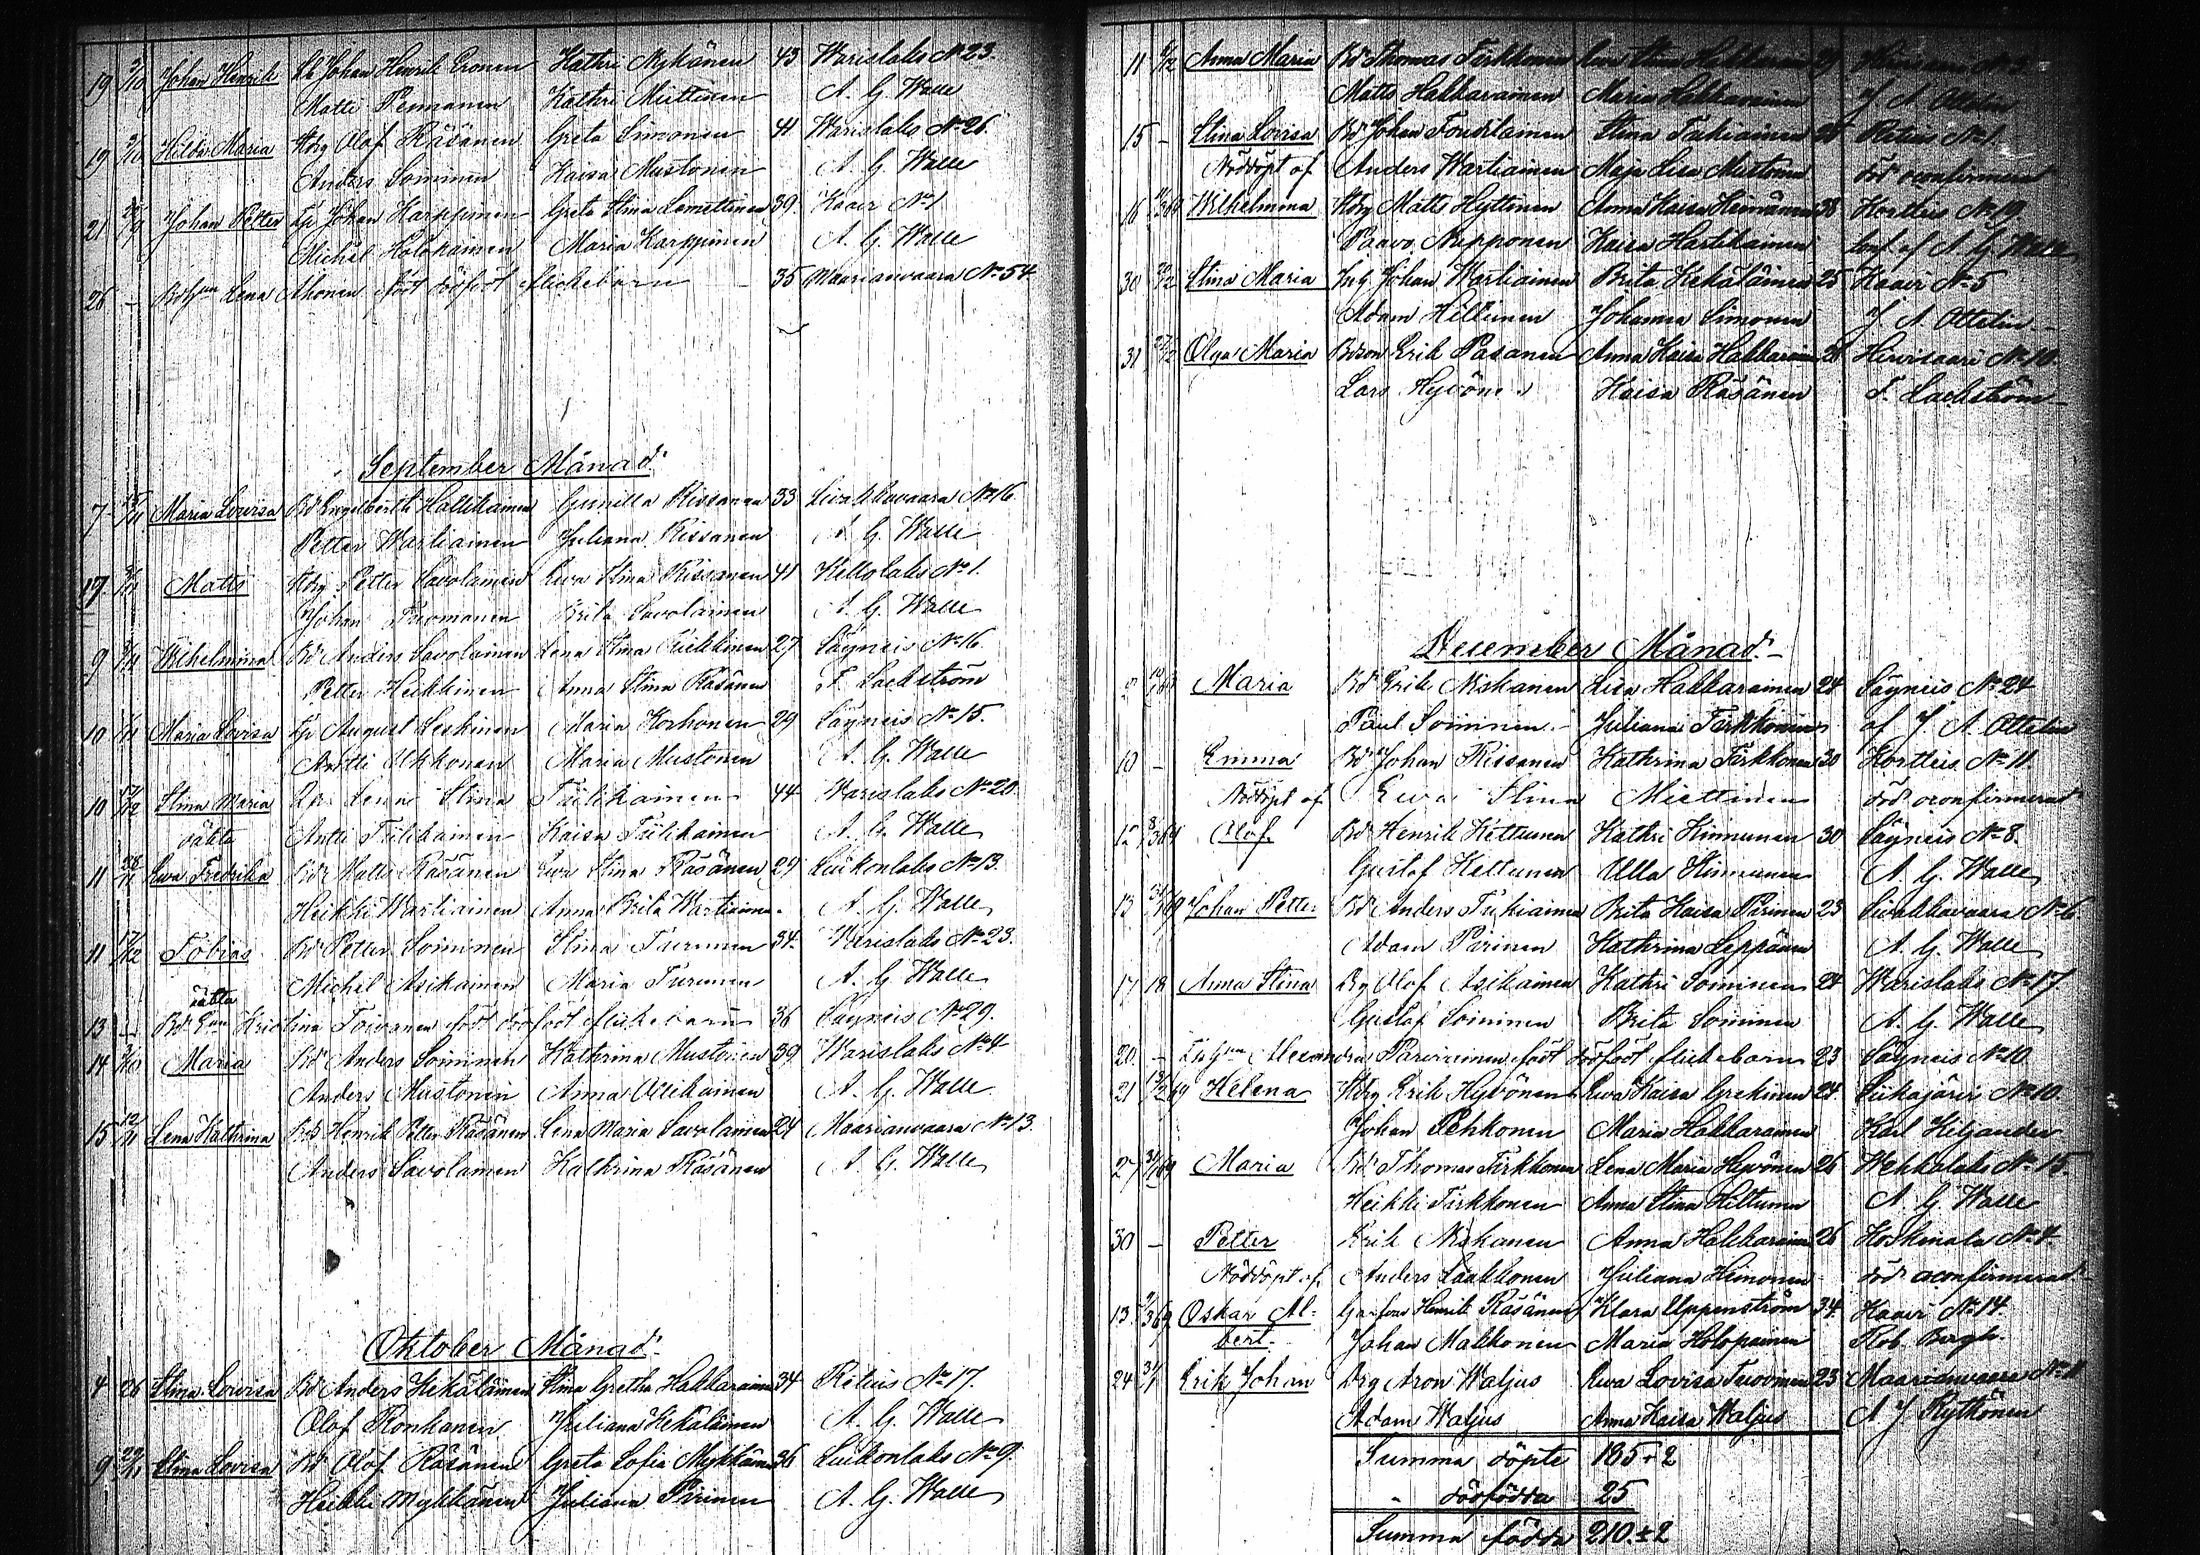 19 2/10 Johan Henrik Lb Johan Henrik Eronen Kathri Nykänen 43 Warislaks No 23.
Matti Pennanen Kathri Miettinen A. G. Walle
19 2/10 Hilda Maria Hdrg Olof Räsänen Greta Simonen 41 Warislaks No 26.
Anders Soininen Kaisa Mustonen A. G. Walle
21 /9 Johan Petter Lp Johan Karppinen Greta Stina Lomettinen 39 Kaavi No 1
Michel Holokainen Maria Karppinen A. G. Walle
26 – Lena Ahonen födt dödfödt flickebarn – 35 Maarianvaara No 54
September Månad.
7 15/11 Maria Lovisa Bd Engelbertt Hallikainen Gunilla Rissanen 33 Sivakkavaara No 16.
Petter Wartiainen Juliana Rissanen A. G. Walle
17 Matts Hdrg Petter Savolainen Ewa Stina Rissanen 41 Kellolaks No 1.
Johan Tuomanen Brita Savolainen A. G. Walle
9 /11 Wilhelmina Bd Anders Savolainen Lena Stina Heikkinen 27 Säyneis No 16.
Petter Heikkinen Anna Stina Räsänen F. Lackström
10 /11 Maria Lovisa Lp August Leskinen Maria Korhonen 29 Säyneis No 15.
Antti Ukkonen Maria Mustonen A. G. Walle
10 /12 Stina Maria Lena Stina Tiilikainen 44 Warislaks No 20.
oäkta Antti Tiilikainen Kaisa Tiilikainen A. G. Walle
11 28/11 Ewa Fredrika Bd Matts Räsänen Ewa Stina Räsänen 29 Luikonlaks No 13.
Heikki Wartiainen Anna Brita Wartiainen A. G. Walle
11 17/12 Tobias Bd Petter Soininen Stina Turunen 34. Warislaks No 23.
Michel Asikainen Maria Turunen A. G. Walle
oäkta
13 – Kristina Toivanen födt dödfödt flickebarn 36 Säyneis No 29.
14 /10 Maria Bd Anders Soininen Kathrina Mustonen 39 Warislaks No 4
Anders Mustonen Anna Ollikainen A. G. Walle
15 12/11 Lena Kathrina Bds Henrik Petter Räsänen Lena Maria Savolainen 24 Maarianvaara No 13.
Anders Savolainen Kathrina Räsänen A. G. Walle
Oktober Månad.
4 26 Stina Lovisa Bd Anders Kekäläinen Stina Gretha Hakkarainen 34 Retuis No 17.
Olof Ronkanen Juliana Kekäläinen A. G. Walle
9 22/11 Stina Lovisa Bd Olof Räsänen Greta Sofia Mykkänen 36 Luikonlaks No 9.
Heikki Mykkänen Juliana Pirinen A. G. Walle
11 6/12 Anna Maria Bd Thomas Tirkkonen Ewa Stina Hakkarainen 29
Matts Hakkarainen Maria Hakkarainen J. A. Ottelin
15 – Stina Lovisa Bd Johan Toivilainen Stina Takiainen 28 Retuis No 1.
Nöddöpt af Anders Wartiainen Maja Lisa Mustonen död oconfirmerad
16 /69 Wilhelmina Hdrg Matts Hyttinen Anna Kaisa Heinänen 38 Kortteis No 19.
Paavo Nupponen Kaisa Hartikainen conf. af A. G. Walle
30 /12 Stina Maria Johan Wartiainen Brita Kekäläinen 25 Kaavi No 5
Adam Hiltunen Johanna Simonen J. A. Ottelin
31 27/12 Olga Maria Bdson Erik Pasanen Anna Kaisa Hakkarain 28 Hirvisaari No 10.
Lars Hyvönen Kaisa Räsänen F. Lackström
December Månad.
Maria Bd Erik Niskanen Lisa Hakkarainen 24 Säyneis No 24
Paul Soininen Juliana Tirkkonen af J. A. Ottelin
10 – Emma Bd Johan Rissanen Kathrina Tirkkonen 30 Kortteis No 11.
Nöddöpt af Ewa Stina Miettinen död oconfirmerad
12 8/3 69 Olof. Bd Henrik Kettunen Kathri Kinnunen 30 Säyneis No 8.
Gustaf Kettunen Ulla Kinnunen A. G. Walle
13 /69 Johan Petter Bd Anders Tukiainen Brita Kaisa Pirinen 23 Sivakkavaara No 6
Adam Pirinen Kathrina Leppänen A. G. Walle
17 18 Anna Stina Drg Olof Asikainen Kathri Soininen 24 Warislaks No 17.
Gustaf Soininen Brita Soininen A. G. Walle
20 – Alexandra Parviainen födt dödfödt flickebarn 23 Säyneis No 10.
21 /69 Helena Hdrg Erik Hyvönen Ewa Kaisa Grekinen 24 Siikajärvi No 10.
Johan Pehkonen Maria Hakkarainen Karl Kiljander
27 31/1 69 Maria Bd Thomas Tirkkonen Lena Maria Hyvönen 26 Wehkalaks No 15.
Heikki Tirkkonen Anna Stina Hiltunen A. G. Walle
30 – Petter Erik Niskanen Anna Hakkarainen 26 Koskinala No 4.
Nöddöpt af Anders Laakkonen Juliana Heinonen död oconfirmerad
13 /3 69 Oskar Al- Henrik Räsänen Klara Uppenström 34 Kaavi No 14.
bert. Johan Makkonen Maria Holopainen Rob. Bergh.
24 31/1 Erik Johan Drg Aron Waljus Ewa Lovisa Tuovinen 23 Maarianvaara No 11
Adam Waljus Anna Kaisa Waljus A. J. Kyttönen
Summa döpte 185 + 2
" dödfödda 25
Summa födda 210. ± 2